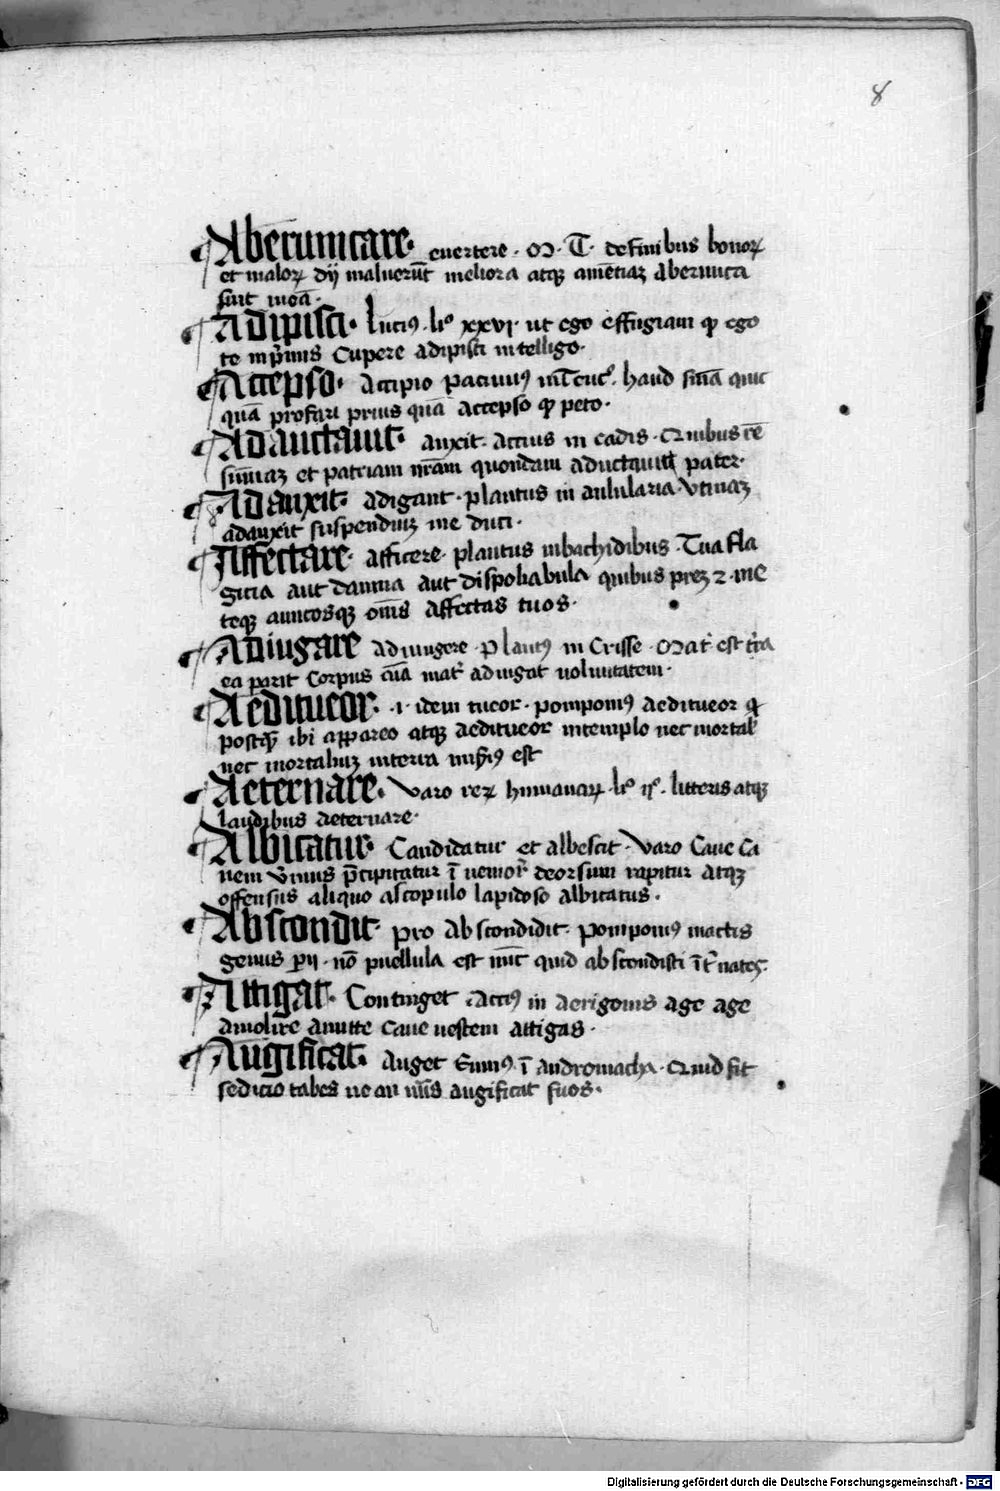 8
Aberuncare. euertere. M. T. de finibus bonoꝝ
et maloꝝ dij maluerūt meliora atqꝫ amētiaꝫ aberunca
sint meā.
Adipisci. lucius. liº xxvj. ut ego effugiam ꝙ ego
te inpͥmis cupere adipisci intelligo.
Accepso. accipio pacuuiꝰ haud sinā quic
quā profari prius quā accepso ꝙ peto.
Adauctauit. auxit. accius in cadis. Quibus rē
sūmaꝫ et patriam nr̄am quondam aductauit pater.
Adauxit. adigant. plautus in aulularia. Vtinaꝫ
adauxit suspendiuꝫ me duci.
Affectare. afficere. plautus inbachidibus. Tua fla
gicia aut damna aut dispoliabula quibus ⁊ me
teqꝫ auncosqꝫ om̄s affectas tuos.
Adiugare adiungere. plautꝰ in Crisse. Mat̄ est t̄ra
ea parit corpus aīa mat̄ adiugat uoluntatem.
Aeditueor. .i. idem tueor. pomponiꝰ aeditueor ꝙ
postqꝫ ibi appareo atqꝫ aeditueor intemplo nec mortal'
nec mortaliuꝫ interra est
Aeternare. Varo reꝝ humanaꝝ. liº ijº. litteris atqꝫ
laudibus aeternare.
Albicatur. Candidatur et albescit. Varo Caue ca
nem Vn̄ius p̄cipitatur ī nemor̄ deorsum rapitur atqꝫ
offensus aliquo ascopulo lapidoso albicatus.
Abscondit. pro abscondidit. pomponiꝰ mactis
genus ꝑij. nō puellula est nūc quid abscondisti īt̄ nates.
Attigat. Continget. acciꝰ in aerigonis age age
amolire amitte caue uestem attigas.
Augificat. auget Enniꝰ. ī andromacha. Quid fit
sedicio tabes ne an nūs augificat suos.
Digitalisierung gefördert durch die Deutsche Forschungsgemeinschaft - DFG